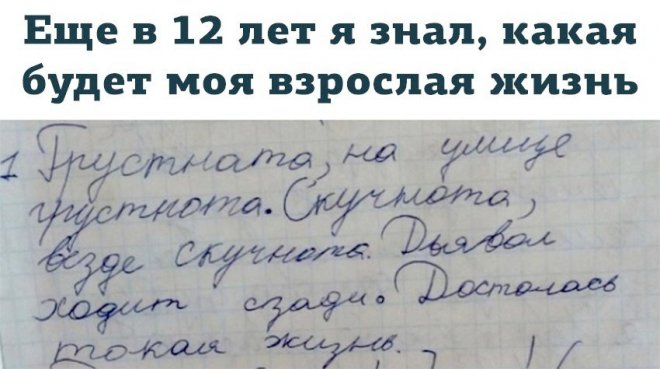 Еще в 12 лет я знал, какая
будет моя взрослая жизнь
1 Грустната, на улице
грустнота. Скучнота,
везде скучнота. Дьявол
ходит сзади. Досталась
такая жизнь.